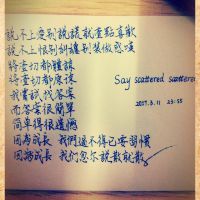 說不上愛別說謊就壹點喜歡
說不上恨別糾纏別裝做感嘆
將壹切都體諒
將壹切都原諒
我嘗試找答案
而答案很簡單
简单得很遺憾
因為成長 我們逼不得已要習慣
因為成長 我們忽尔說散就散
Say scattered scattered
2017.3.11 23:55